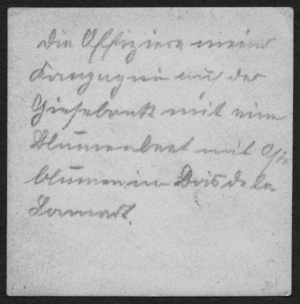 Die Offiziere meiner
Kompagnie auf der
Giesebank mit einem
Blumenbeet mit Oster
blumen im Bois de la
Lamart.